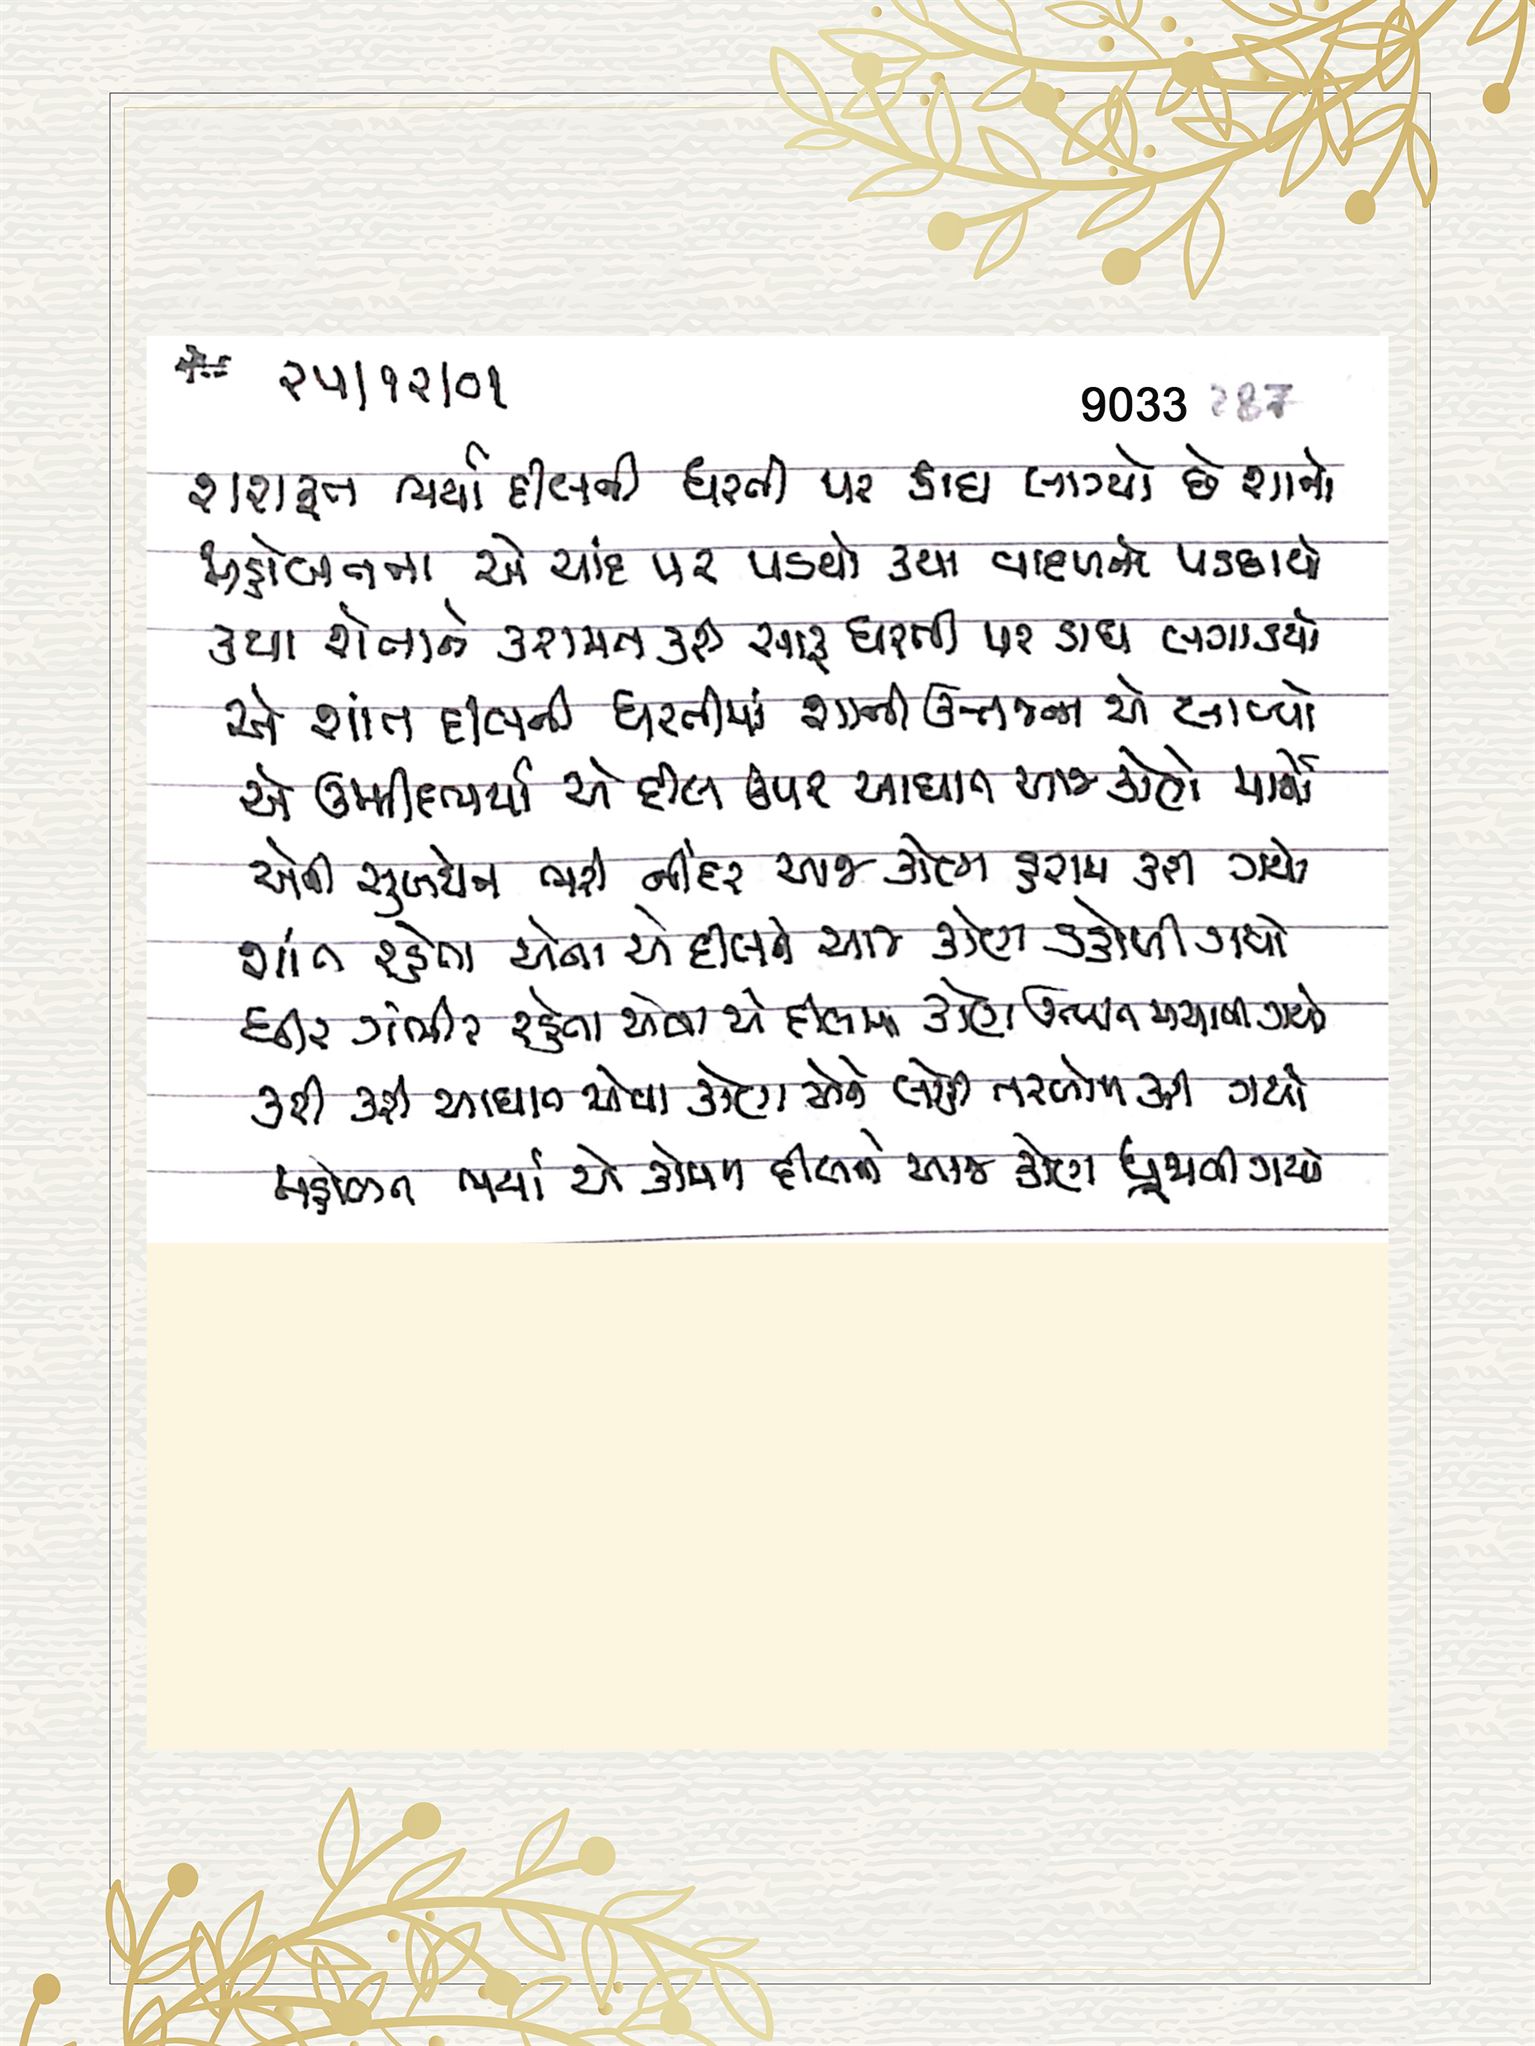 ૨૫/૧૨/૦૧
9033 287
શરાફત ભર્યા દીલની ધરતી પર ડાઘ લાગ્યો છે શાનો
મહોબતના એ ચાંદ પર પડયો કયા વાદળનો પડછાયો
કયા શેતાને કરામત કરી સારૂ ધરતી પર ડાઘ લગાડયો
એ શાંત દીલની ધરતીમાં શાની ઉત્તજના એ લાવ્યો
એ ઉમ્મીદભર્યા એ દીલ ઉપર આઘાત આજ કોણે માર્યો
એની સુખચેન ભરી નીંદર આજ કોણ હરામ કરી ગયો
શાંત રહેતા એના એ દીલને આજ કોણ ડહોળી ગયો
ધીર ગંભીર રહેતા એવા એ દીલમાં કોણ ઉત્પાત મચાવી ગયો
કરી કરી આઘાત એવા કોણ એને લોહી તરબોળ કરી ગયો
મહોબત ભર્યા એ કોમળ દીલને આજ કોણ ધ્રૂજાવી ગયો